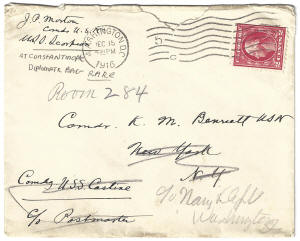 J. P. Morton
Comdr U.S.
USS Scorpion
AT CONSTANTINOPLE
DIPLOMATIC BAG
RARE
WASHINGTON, D.C.
DEC 15
PM
1916
5
C
Room 284
Comdr. K. M. Bennett USN
New York
N.Y.
Comdg U.S.S. Castine
c/o Postmaster
c/o Navy Dept
Washington